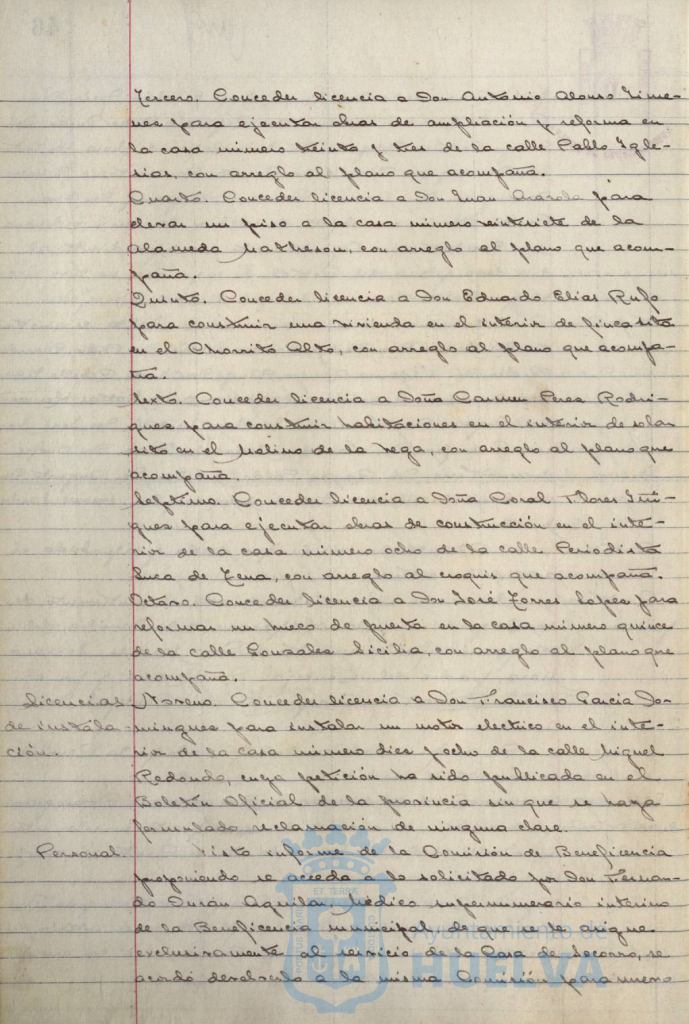 Tercero. Conceder licencia a Don Antonio Alonso Jime-
nez para ejecutar obras de ampliación y reforma en
la casa número treinta y tres de la calle Pablo Igle-
sias, con arreglo al plano que acompaña.
Cuarto. Conceder licencia a Don Juan para
elevar un piso a la casa número veintisiete de la
Alameda Matheson, con arreglo al plano que acom-
paña.
Quinto. Conceder licencia a Don Eduardo Elias Rufo
para construir una vivienda en el interior de finca sita
en el Chorrito Alto, con arreglo al plano que acompa-
ña.
Sexto. Conceder licencia a Doña Carmen Perez Rodri-
guez para construir habitaciones en el interior de solar
sito en el Molino de la Vega, con arreglo al plano que
acompaña.
Septimo. Conceder licencia a Doña Coral Flores Iñi-
guez para ejecutar obras de construcción en el inte-
rior de la casa número ocho de la calle Periodista
Luca de Tena, con arreglo al croquis que acompaña.
Octavo. Conceder licencia a Don José Torres Lopez para
reformar un hueco de puerta en la casa número quince
de la calle Gonzalez Sicilia, con arreglo al plano que
acompaña.
Licencias
de instala-
ción.
Noveno. Conceder licencia a Don Francisco Garcia Do-
minguez para instalar un motor electrico en el inte-
rior de la casa número diez y ocho de la calle Miguel
Redondo, cuya petición ha sido publicada en el
Boletin Oficial de la provincia sin que se haya
formulado reclamación de ninguna clase.
Personal.
Visto informe de la Comisión de Beneficencia
proponiendo se acceda a lo solicitado por Don Fernan-
do Durán Aguilar, Médico supernumerario interino
de la Beneficencia municipal, de que se le asigne
exclusivamente al servicio de la Casa de Socorro, se
acordó devolverlo a la misma Comisión para nuevo
Ayuntamiento de
HUELVA